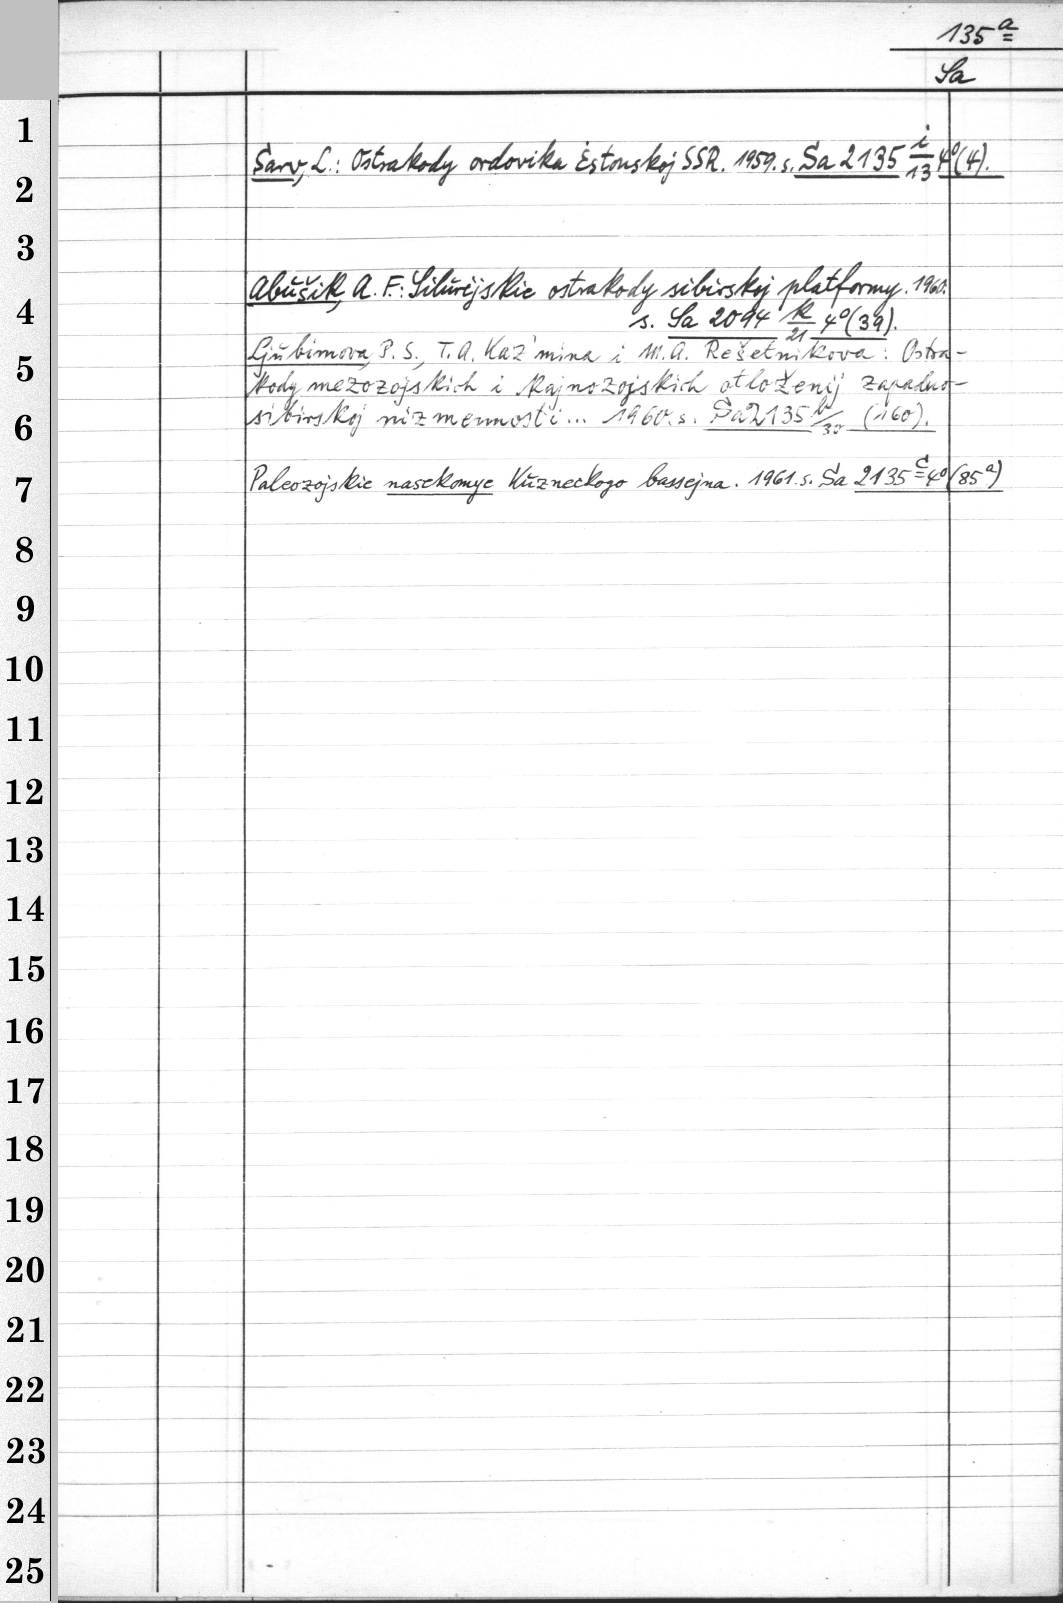 135 a
Sa
1
Sarv, L.: Ostrakody ordovika Ėstonskoj SSR. 1959. s. Sa 2135 i/13 4°(4).
2
3
Abušik, A. F.: Silurijskie ostrakody sibirskoj platformy. 1960.
4
s. Sa 2094 k/21 4°(39).
Ljubimova, P. S., T. A. Kaz'mina i M. A. Rešetnikova: Ostra-
5
kody mezozojskich i kajnozojskich otloženij zapadno-
6
sibirskoj nizmennosti... 1960. s. Sa 2135 b/30 (160).
7
Paleozojskie nasekomye Kuzneckogo bassejna. 1961. s. Sa 2135 c 4°(85a)
8
9
10
11
12
13
14
15
16
17
18
19
20
21
22
23
24
25